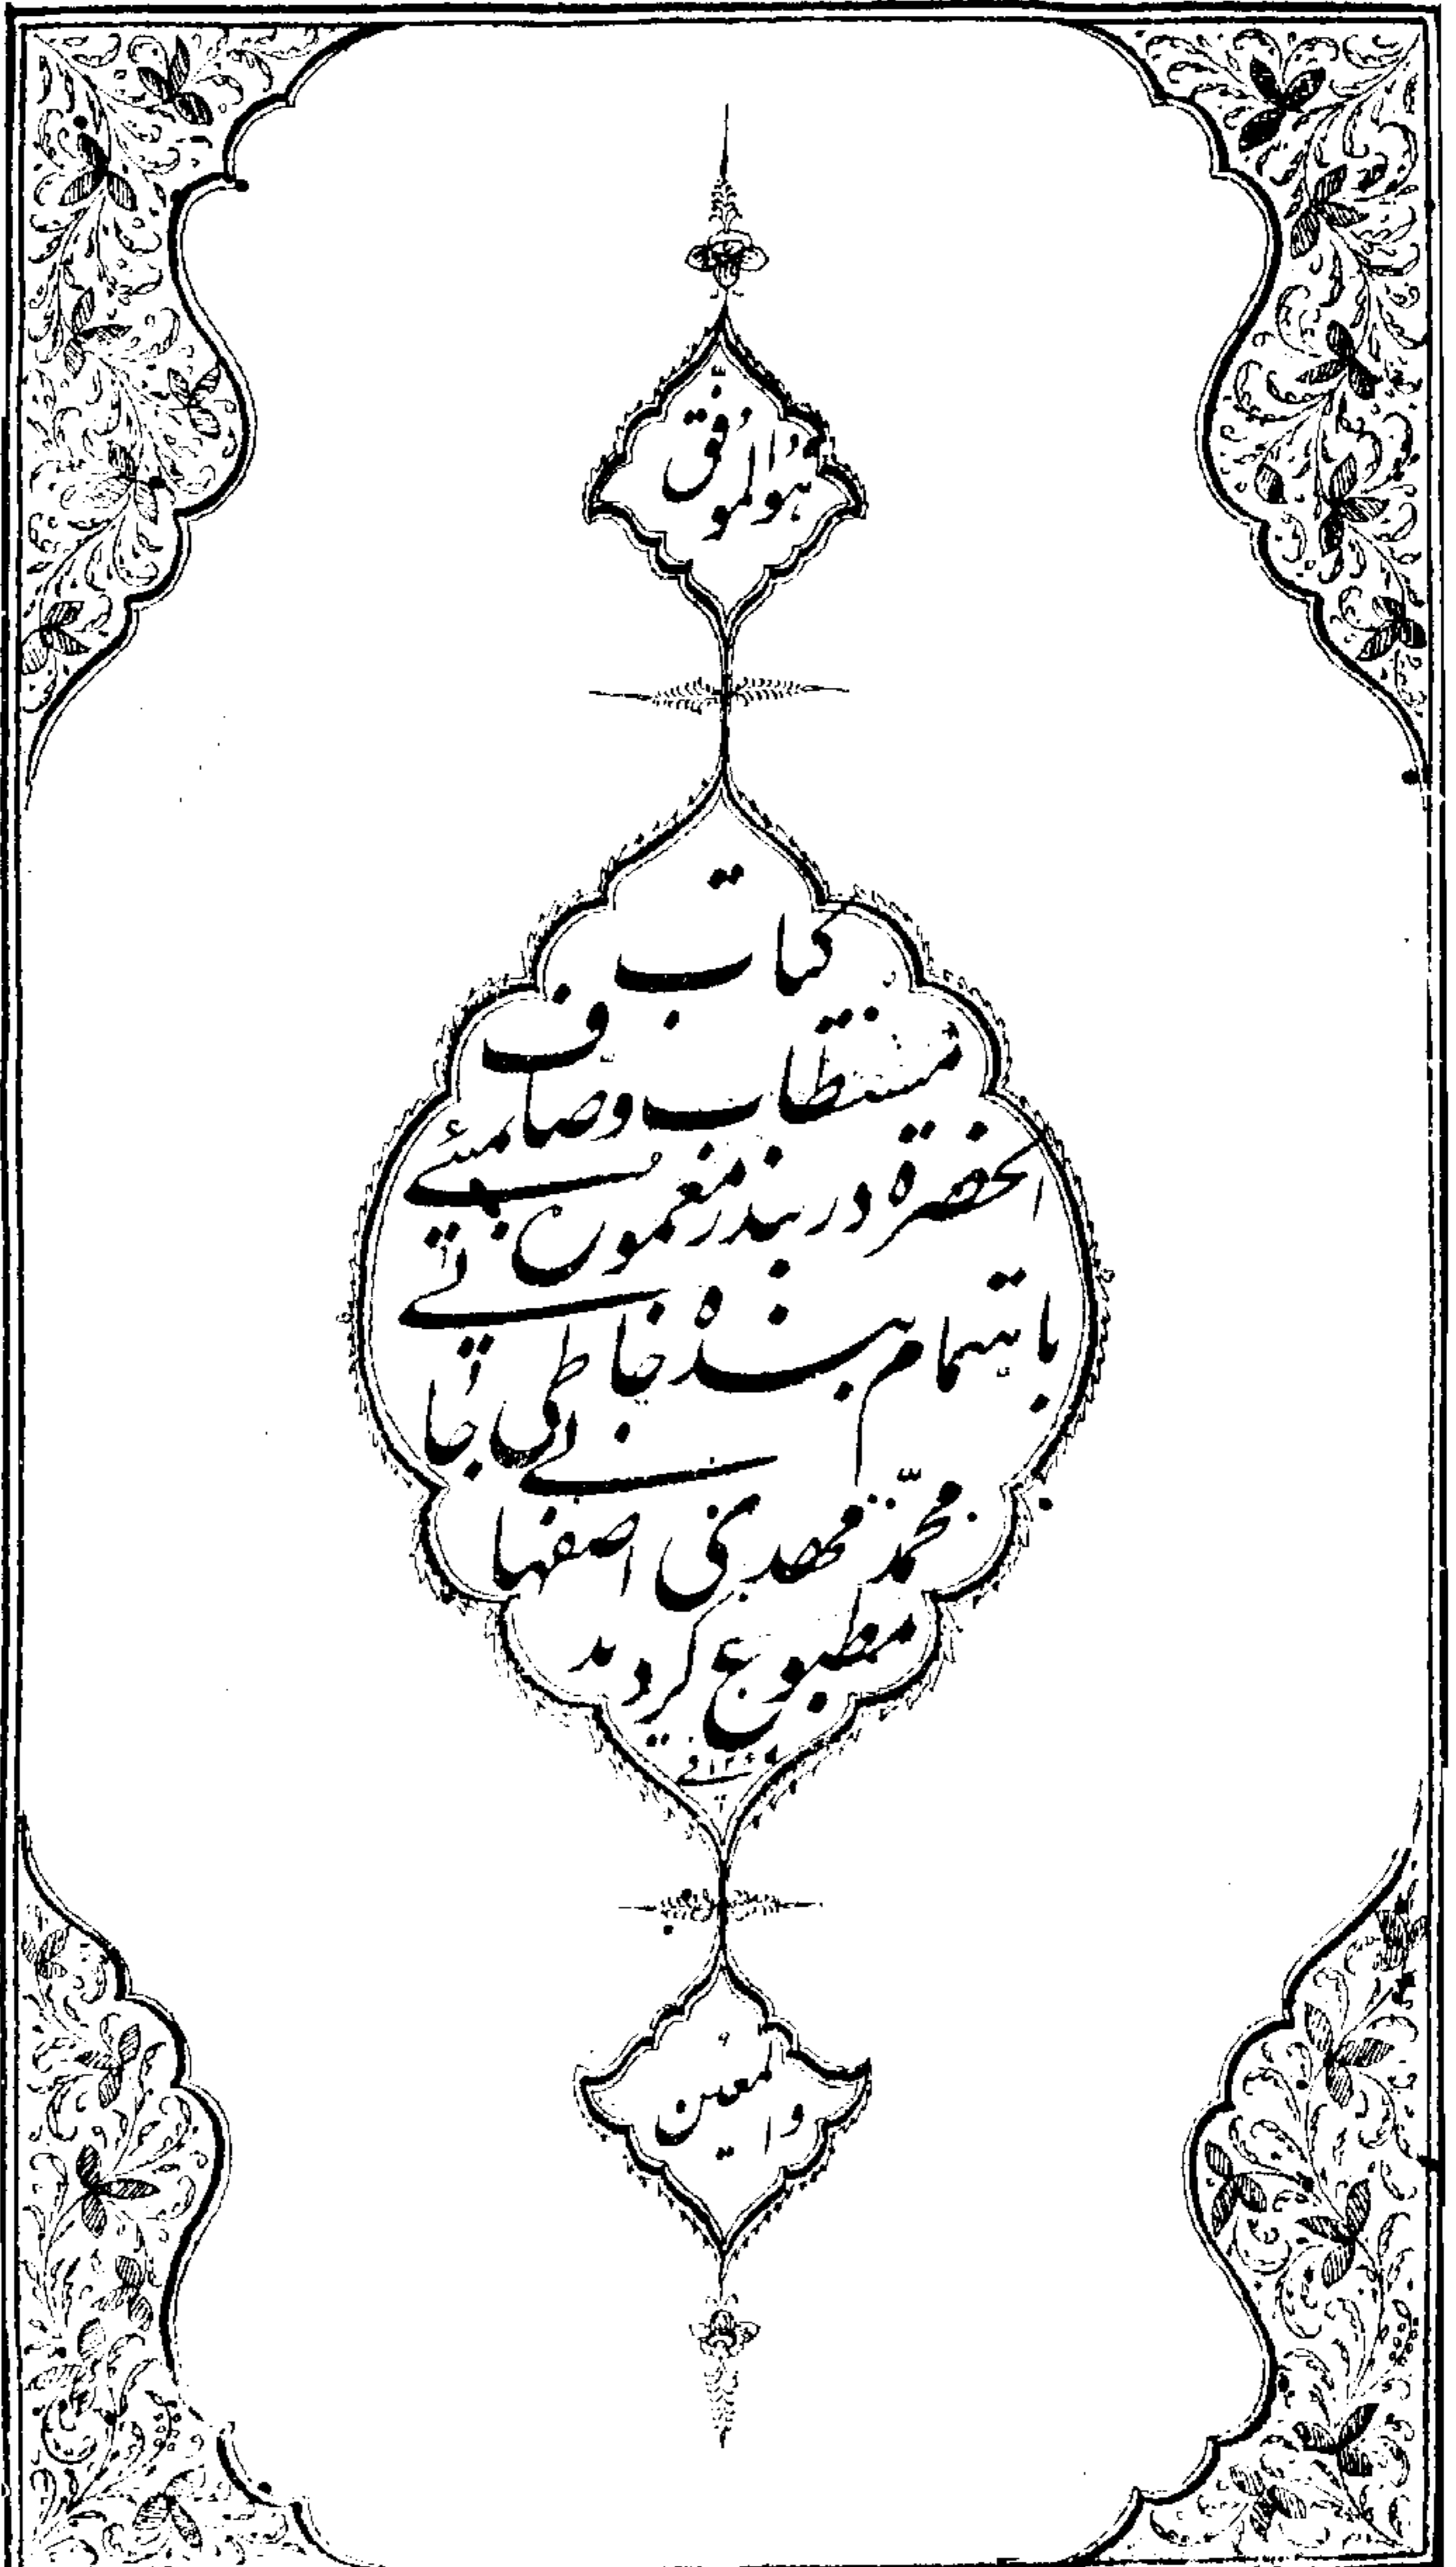 هُوَالمُوَفّق
کتاب
مستطاب وصاف
الحضرة در بندر معمور بمبئی
باهتمام بندهٔ خاطی جانی
محمّد مهدی اصفهانی
مطبوع گردید
والمعین